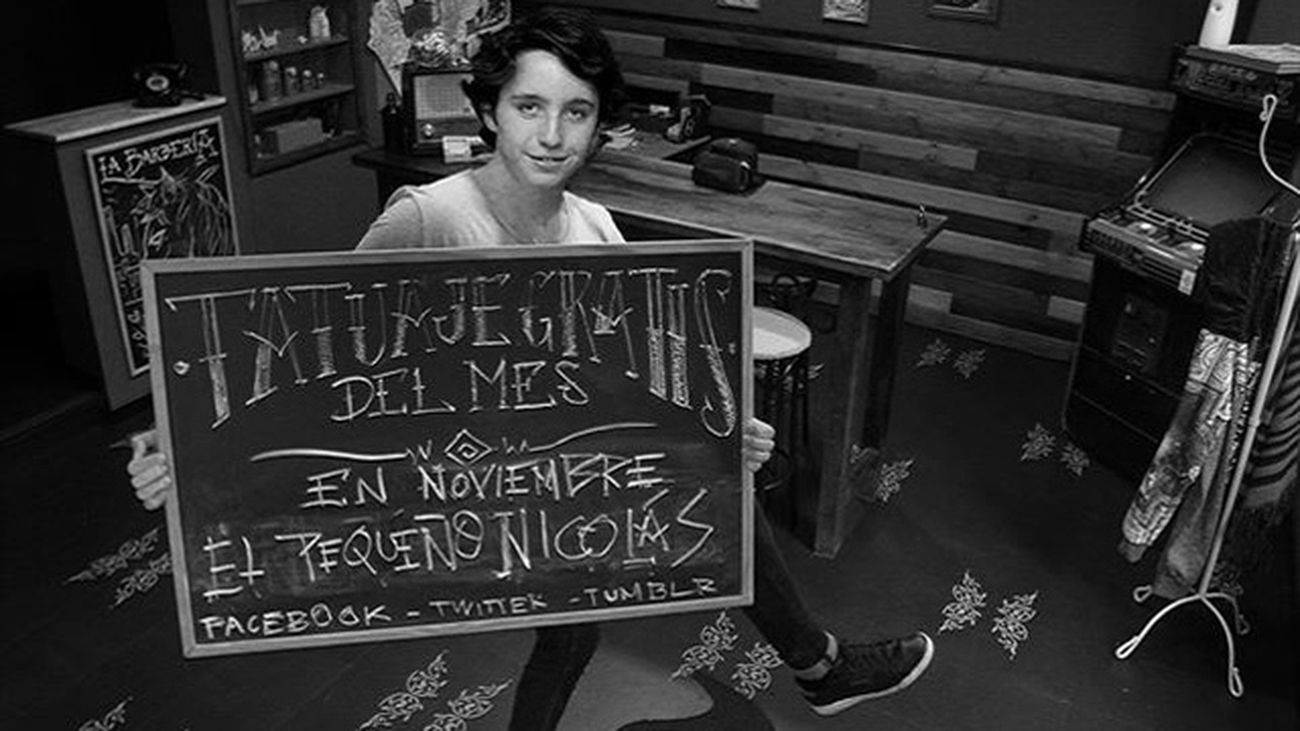 LA BARBERÍA
TATUAJE GRATIS
DEL MES
EN NOVIEMBRE
EL PEQUEÑO NICOLÁS
FACEBOOK - TWITTER - TUMBLR